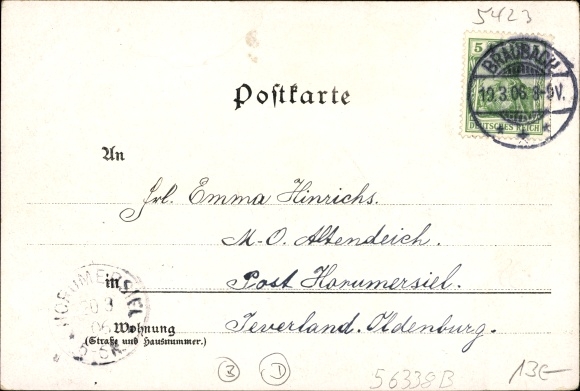 5423
5
DEUTSCHES REICH
BRAUBACH
19.3.06.8-9V.
Postkarte
An
Frl. Emma Hinrichs.
M.-O. Altendeich.
in Post Horumersiel.
Wohnung Jeverland. Oldenburg.
(Straße und Hausnummer.)
HORUMERSIEL
20 3
06
3 D 56338B 13€